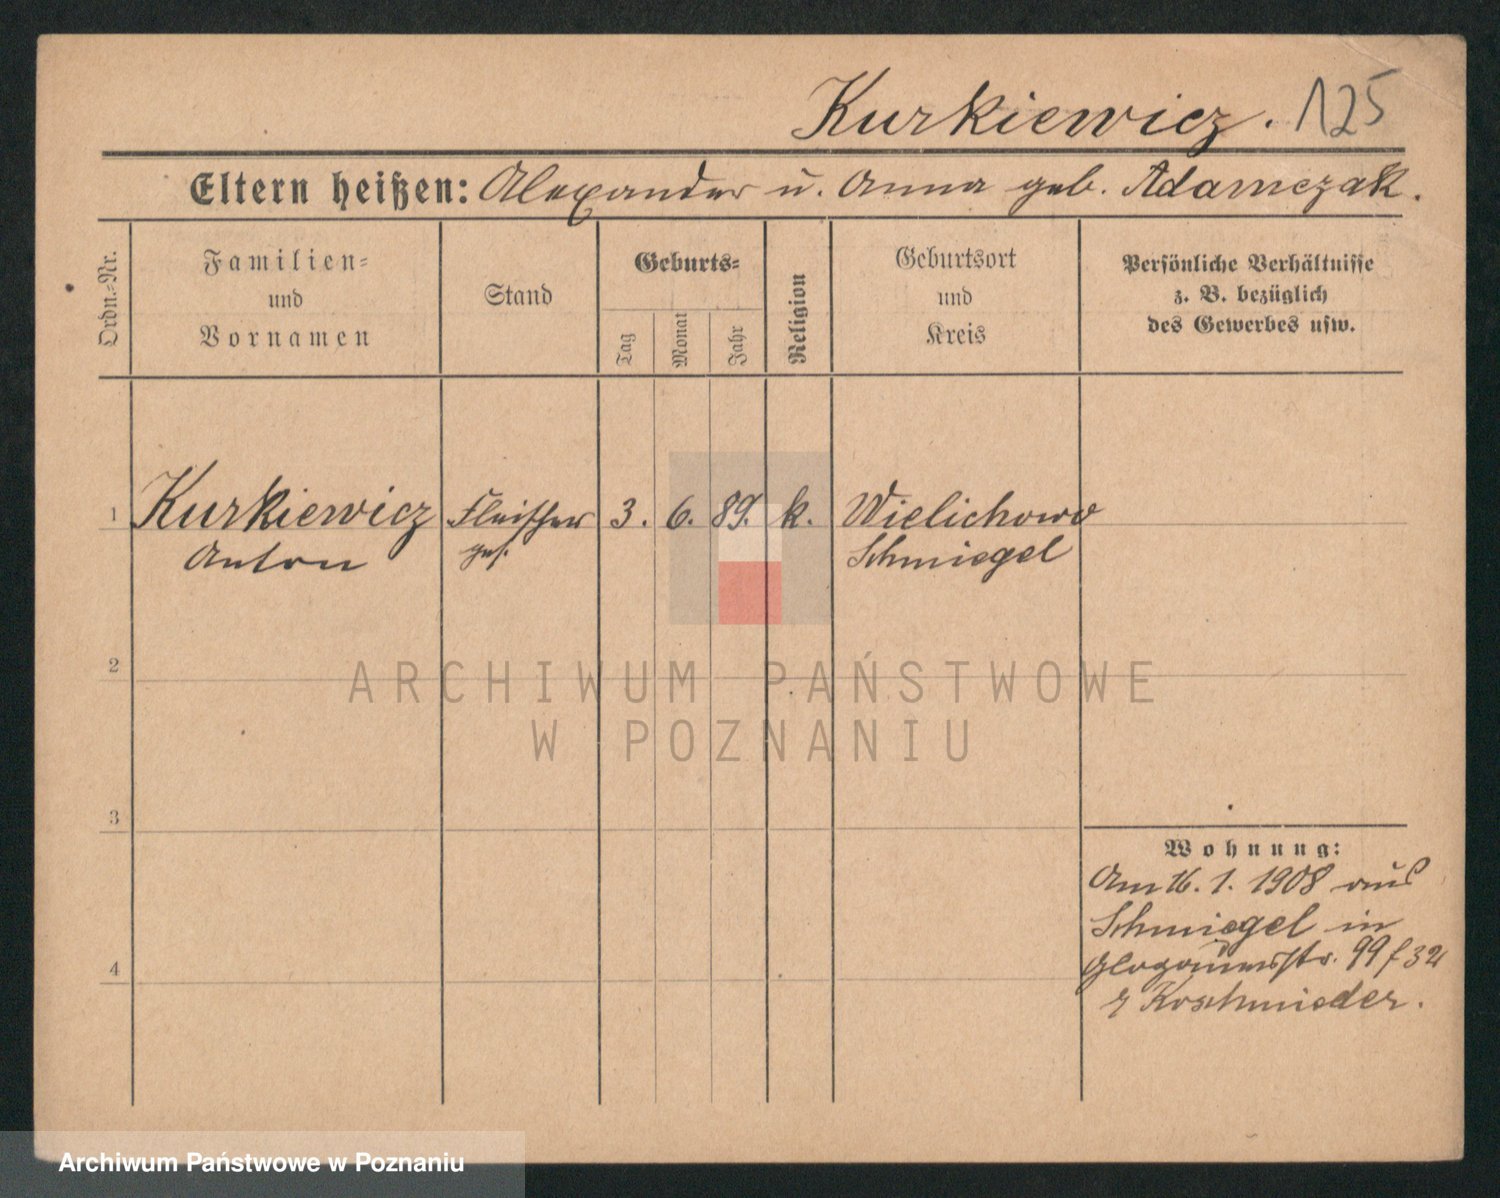 Kurkiewicz. 125
Eltern heißen: Alexander u. Anna geb. Adamczak.
Ordn.-Nr.
Familien-
und
Vornamen
Stand
Geburts-
Tag
Monat
Jahr
Religion
Geburtsort
und
Kreis
Persönliche Verhältnisse
z. B. bezüglich
des Gewerbes usw.
1 Kurkiewicz Fleischer 3. 6. 89. k. Wielichowo
Anton ges. Schmiegel
2
ARCHIWUM PAŃSTWOWE
W POZNANIU
3
Wohnung:
Am 16. 1. 1908 aus
Schmiegel in
Glogauerstr. 99
4
Koschmieder.
Archiwum Państwowe w Poznaniu